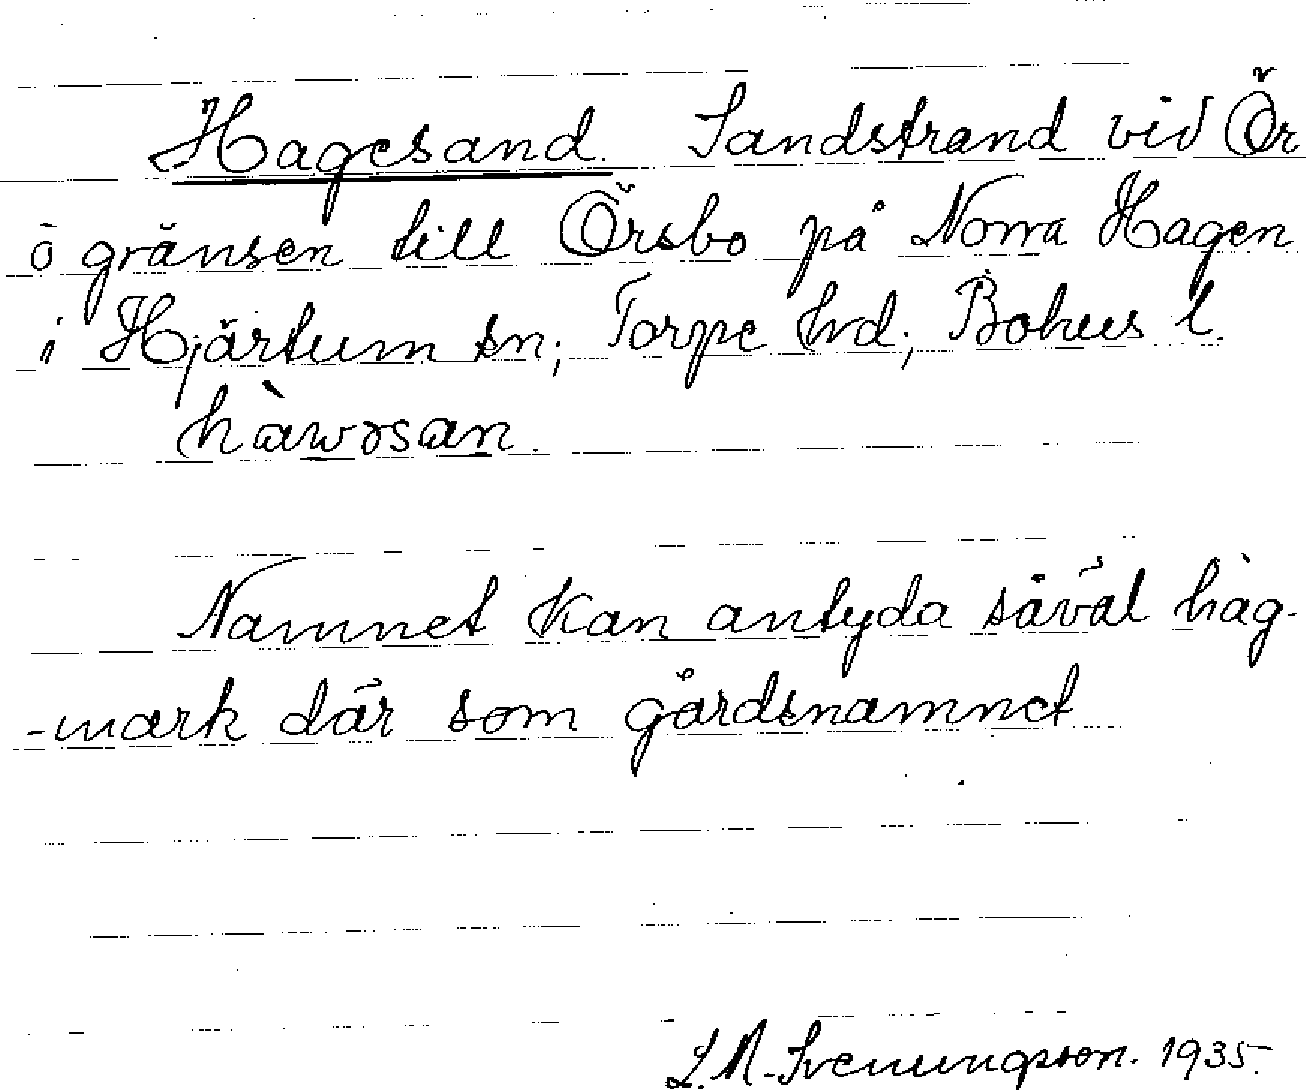 Hagesand. Sandstrand vid Ör
ö gränsen till Örsbo på Norra Hagen
i Hjärtum sn; Torpe hrd; Bohus l.
hàwəsan.
Namnet kan antyda såväl hag-
-mark där som gårdsnamnet
L.A. Svenungsson. 1935.